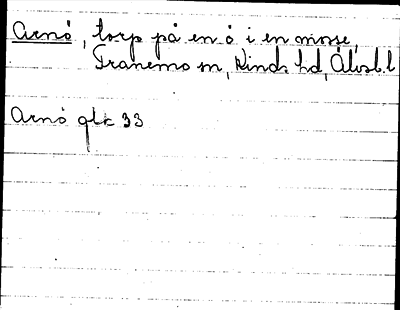 Arnö, torp på en ö i en mosse,
Tranemo sn, Kinds hd, Älvsb. l
Arnö glk 33